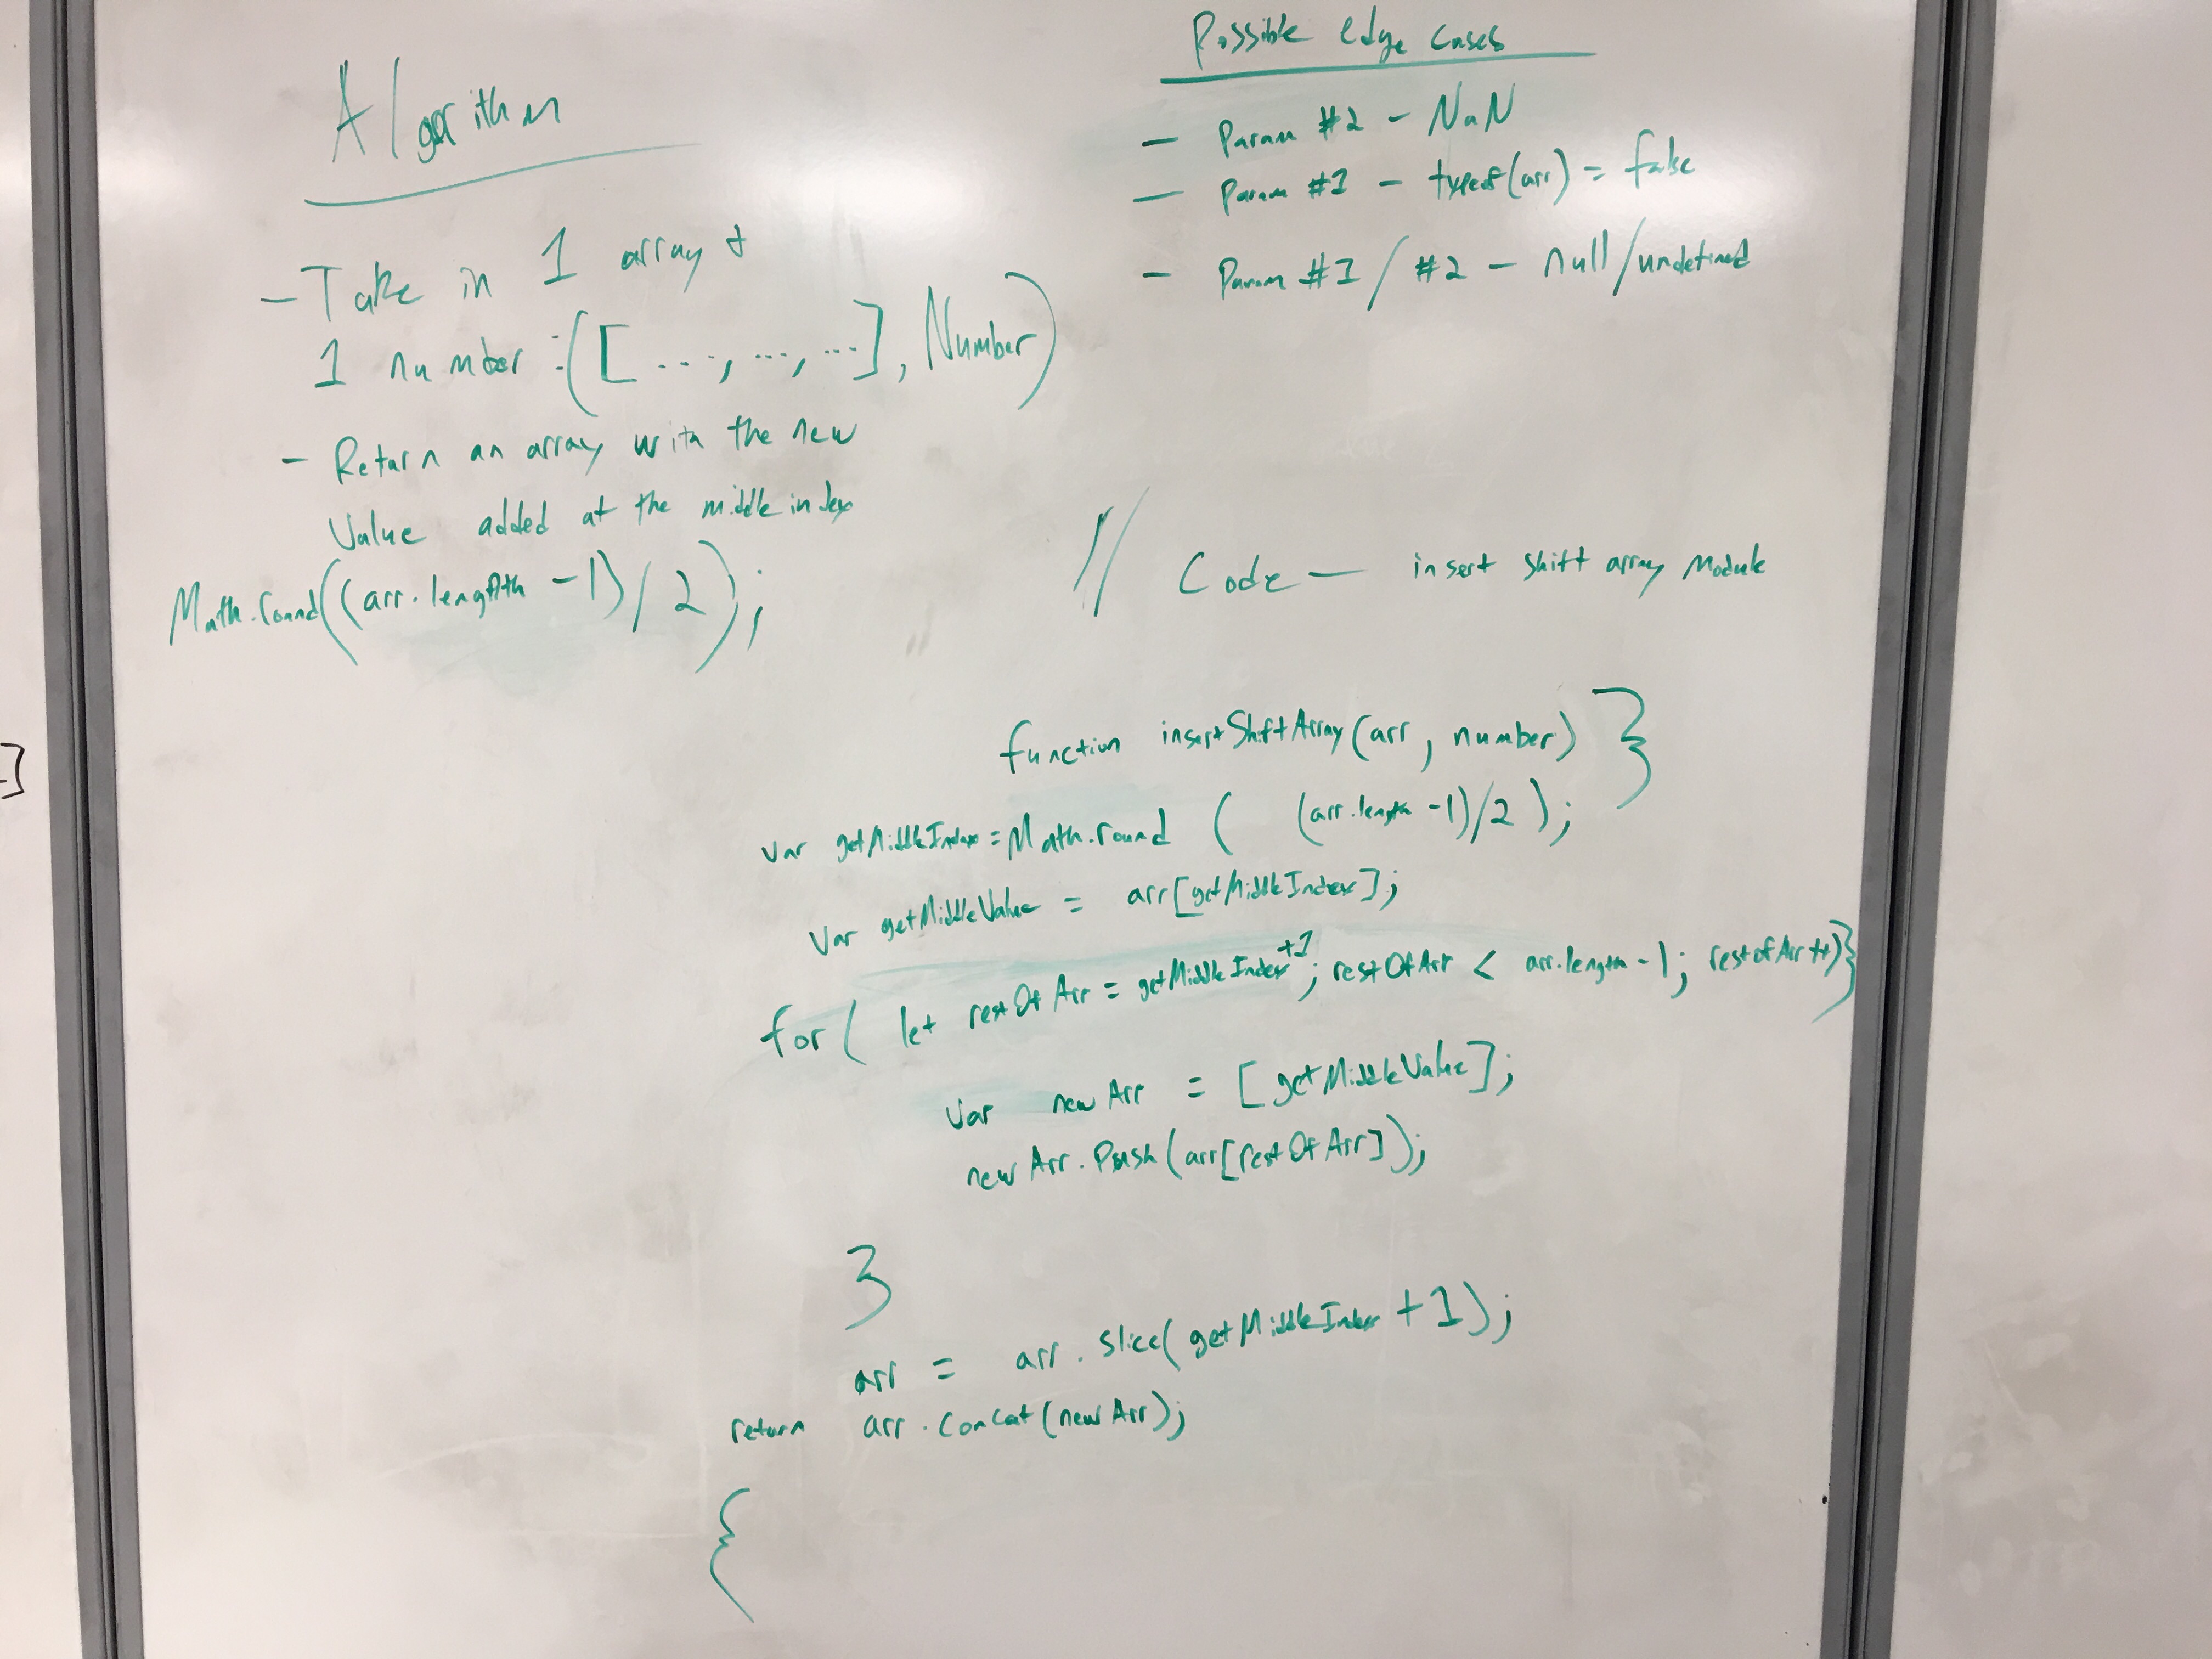 Algorithm
- Take in 1 array +
1 number :([ ..., ..., ...], Number)
- Return an array with the new
Value added at the middle index
Math.round((arr.length -1)/2);
Possible edge cases
- Param #2 - NaN
- Param #1 - typeof(arr) = false
- Param #1/#2 - null/undefined
// Code - insert shift array module
function insertShiftArray(arr, number) }
var getMiddleIndex = Math.round ( (arr.length -1)/2 );
Var getMiddleValue = arr[getMiddleIndex];
for( let restOfArr = getMiddleIndex+1; restOfArr < arr.length-1; restofArr++)}
Var newArr = [getMiddleValue];
newArr.Push(arr[restOfArr]);
}
arr = arr.slice(getMiddleIndex +1);
return arr.concat(newArr);
{
]